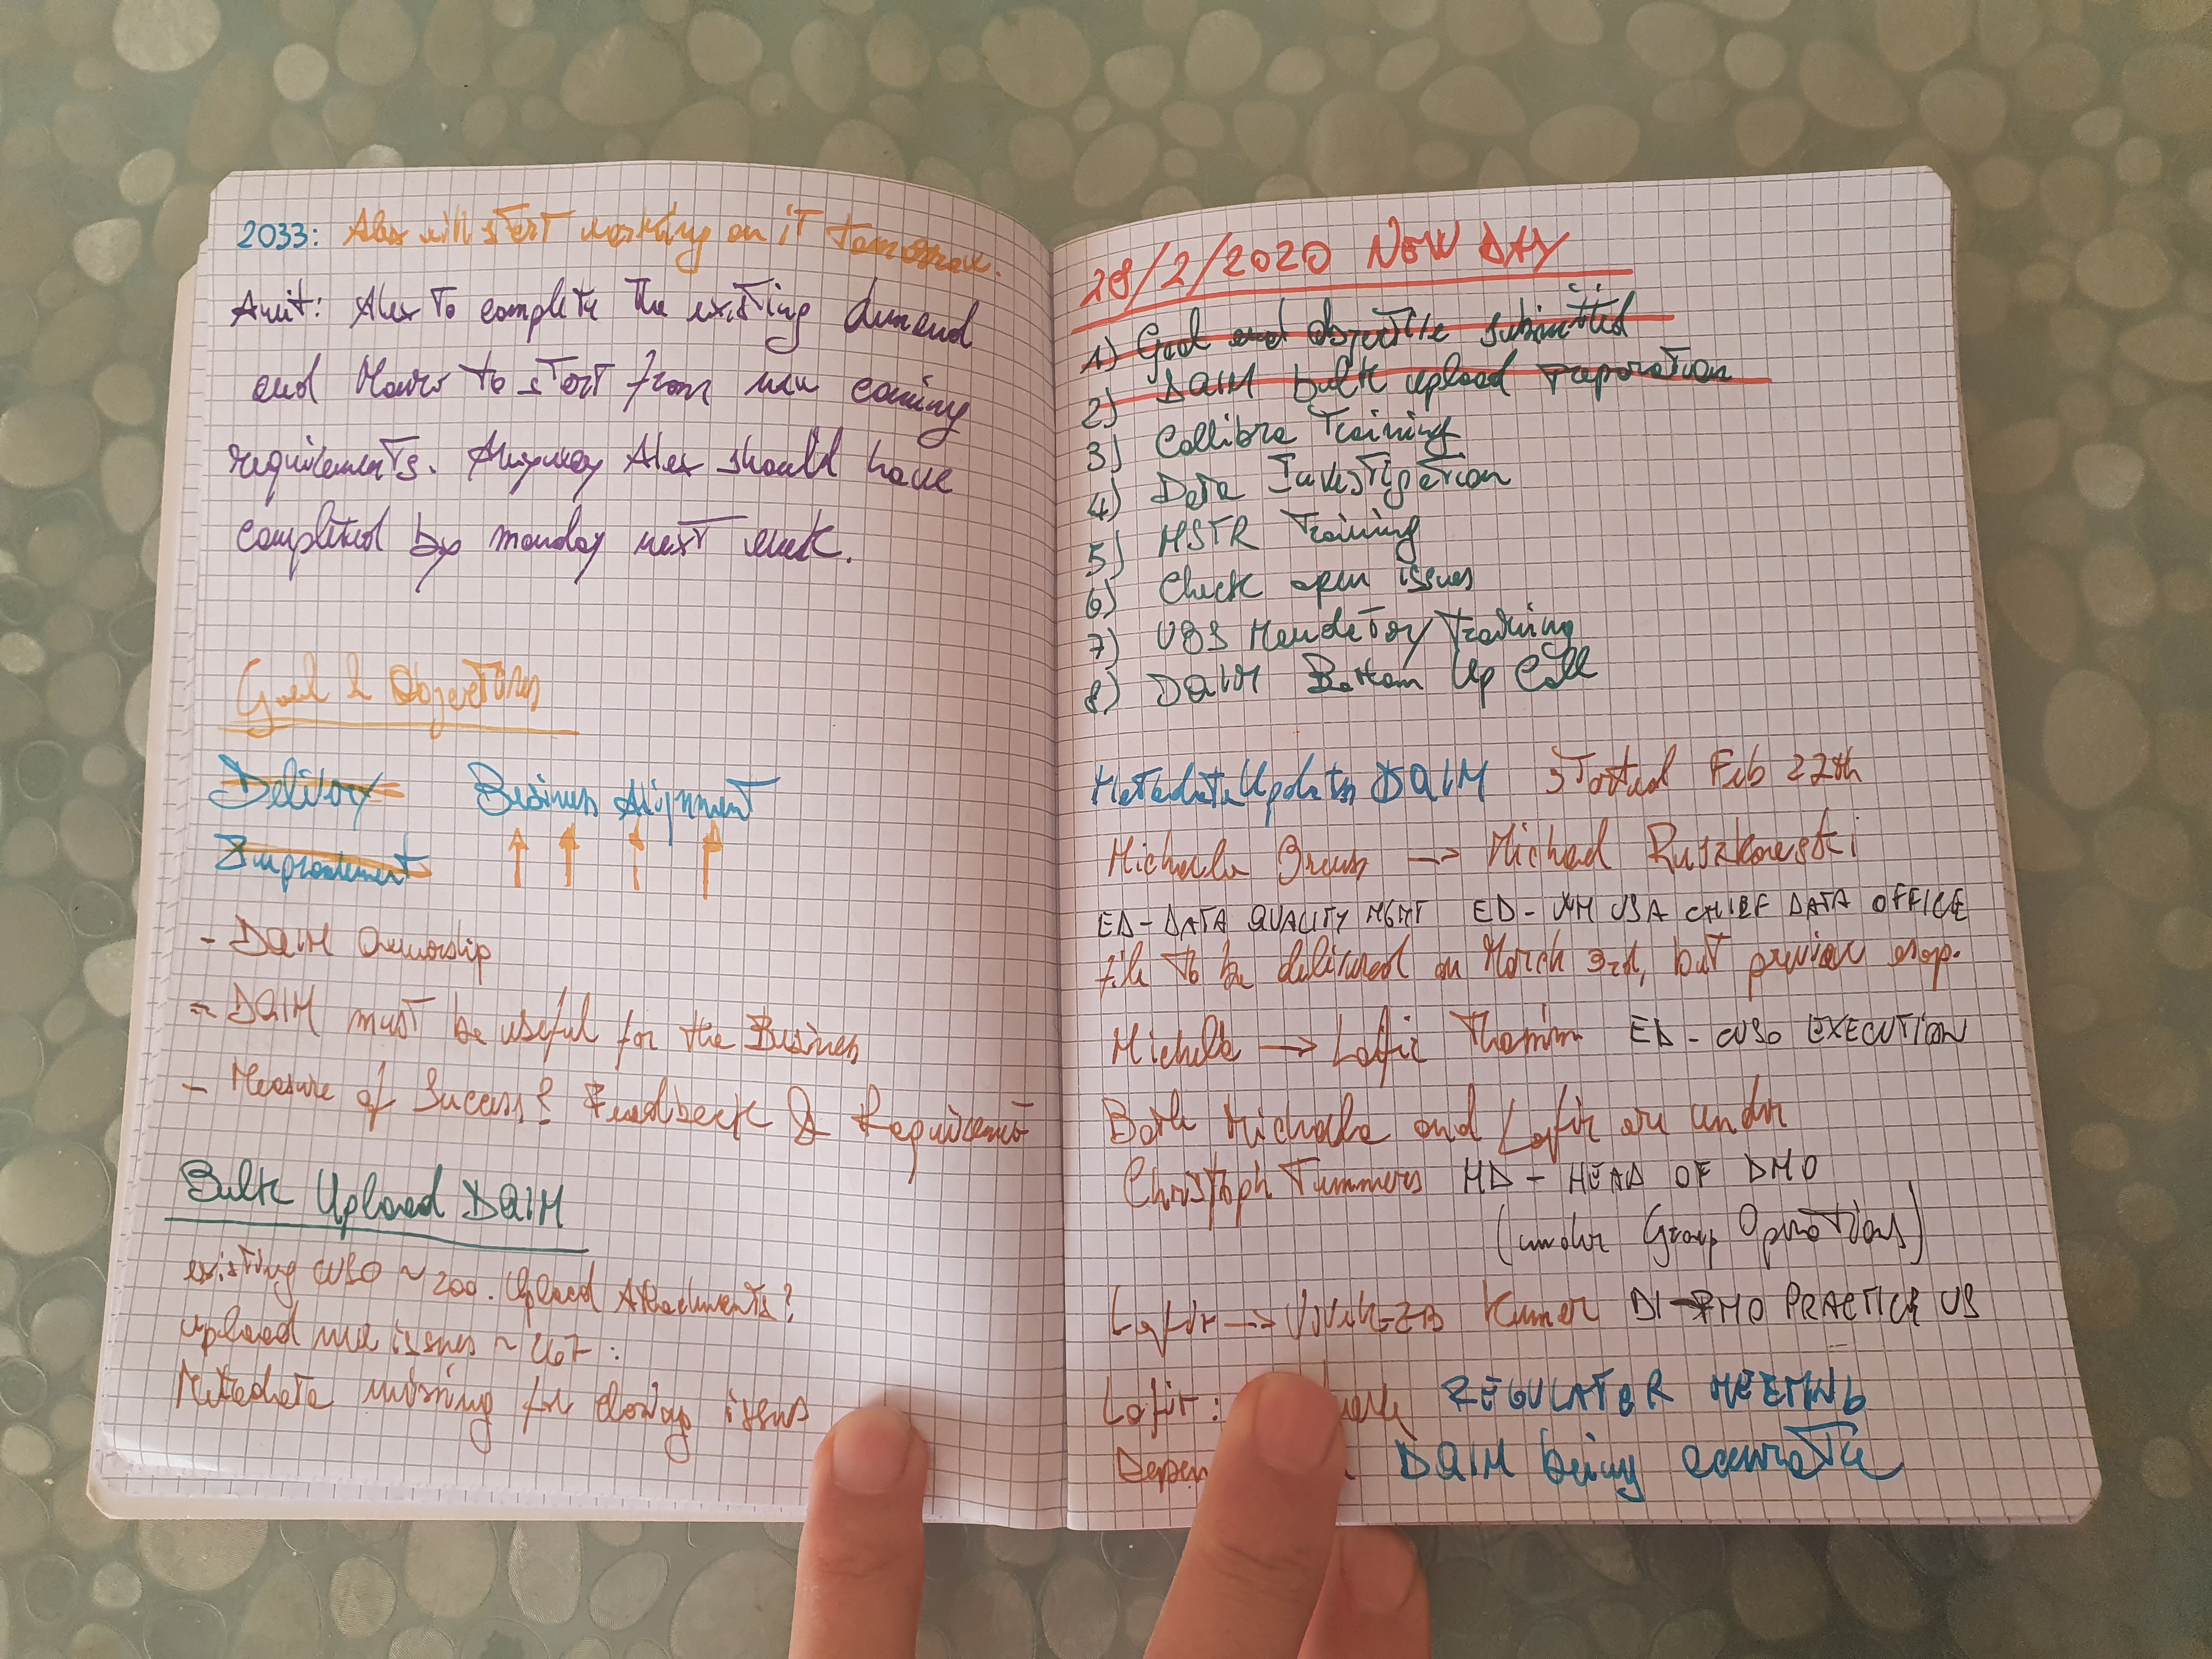 2033: Alex will start working on it tomorrow.
Amit: Alex to complete the existing demand
and Mauro to start from new coming
requirements. Anyway Alex should have
completed by monday next week.
Goal & Objectives
Delivery Business Alignment
Improvement ↑ ↑ ↑ ↑
- DQIM Ownership
- DQIM must be useful for the Business
- Measure of Success? Feedback & Requirement
Bulk Upload DQIM
existing CUSO ~ 200. Upload Attachments?
upload new issues ~ 467:
Metadata missing for closing issues
28/2/2020 NEW DAY
1) Goal and Objective submitted
2) DQIM bulk upload preparation
3) Collibra Training
4) Data Investigation
5) MSTR Training
6) Check open issues
7) UBS Mandatory Training
8) DQIM Bottom Up Call
Metadata Updates DQIM Started Feb 27th
Michaela → Michael Rutzkowski
ED - DATA QUALITY MGMT ED - WM USA CHIEF DATA OFFICE
file to be delivered on March 3rd, but preview asap.
Michaela → Lafir Thamim ED - CUSO EXECUTION
Both Michaela and Lafir are under
Christoph Tummers MD - HEAD OF DMO
(under Group Operations)
Lafir → Kumar DI - PMO PRACTICE US
Lafir: REGULATOR MEETING
DQIM being accurate